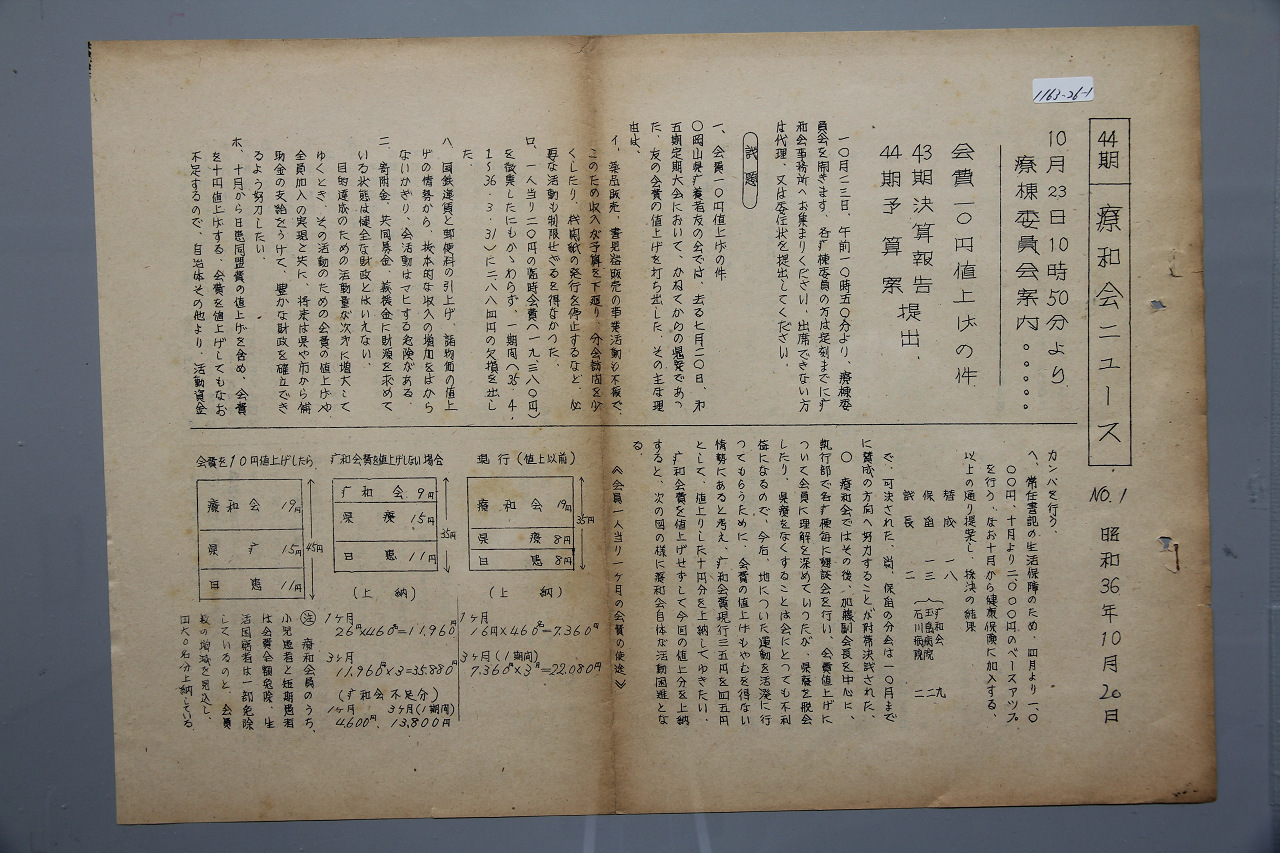 1163-26-1
44期 療和会ニュース NO.1 昭和36年10月20日
10月23日10時50分より
療棟委員会案内。。。。。
会費一〇円値上げの件
43期決算報告
44期予算案
提出.
一〇月二三日、午前一〇時五〇分より、療棟委
員会を開きます、各疒棟委員の方は定刻までに疒
和会事務所へお集まりください、出席できない方
は代理、又は委任状を提出してください。
議題
一、会費一〇円値上げの件
〇岡山県疒養者友の会では、去る七月二〇日、才
五期定期大会において、かねてからの懸案であっ
た、友の会費の値上げを打ち出した、その主な理
由は、
イ、薬品販売、書見器販売の事業活動も不振で、
このため収入が予算を下廻り、分会訪問を少
くしたり、機関紙の発行を停止するなど、必
要な活動も制限せざるを得なかった。
ロ、一人当り二〇円の臨時会費へ一九、三八〇円〉
を徴集したにもかゝわらず、一期間へ35.4.
1～36.3.31〉に二八、八四四円の欠損を出し
た。
ハ、国鉄運賃と郵便料の引上げ、諸物価の値上
げの情勢から、抜本的な収入の増加をはから
ないかぎり、会活動はマヒする危険がある。
二、寄附金、共同募金、義捐金に財源を求めて
いる状態は健全な財政とはいえない。
目的達成のための活動量が次次に増大して
ゆくとき、その活動のための会費の値上げや
全員加入の実現と共に、将来は県や市から補
助金の支給をうけて、豊かな財政を確立でき
るよう努力したい。
ホ、十月から日患同盟費の値上げを含め、会費
を十円値上げする、会費を値上げしてもなお
不足するので、自治体その他より、活動資金
カンパを行う。
ヘ、常任書記の生活保障のため、四月より一、〇
〇〇円、十月より二、〇〇〇円のベースアップ
を行う、なお十月から健康保険に加入する、
以上の通り提案し、採決の結果
賛成 一八
保留 一三 (疒和会 九 玉島病院 二 石川病院 二
議長 二
で、可決された、尚、保留の分会は一〇月まで
に賛成の方向へ努力することが附帯決議された、
〇 療和会ではその後、加藤副会長を中心に、
執行部で各疒棟毎に懇談会を行い、会費値上げに
ついて会員に理解を深めていったが、県療を脱会
したり、県療をなくすることは会にとっても不利
益になるので、今后、地についた運動を活溌に行
ってもらうために、会費の値上げもやむを得ない
情勢にあると考え、疒和会費現行三五円を四五円
として、値上りした十円分を上納してゆきたい、
疒和会費を値上げせずして今回の値上分を上納
すると、次の図の様に療和会自体が活動困難とな
る
《会員一人当り一ヶ月の会費の使途》
現行(値上以前)
療和会 19円
県療 8円
日患 8円
35円
(上納)
1ヶ月
16円×460名=7.360円
3ヶ月(1期間)
7.360円×3ヶ月=22.080円
疒和会費を値上げしない場合
疒和会 9円
県療 15円
日患 11円
35円
(上納)
1ヶ月
26円×460名=11.960円
3ヶ月
11.960円×3=35.880円
(疒和会不足分)
1ヶ月 3ヶ月(1期間)
4,600円、13,800円
会費を10円値上げしたら
療和会 19円
県疒 15円
日患 11円
45円
注 療和会員のうち、
小児患者と短期患者
は会費全額免除、生
活困窮者は一部免除
しているのと、会員
数の増減を見込し、
四六〇名分上納している、